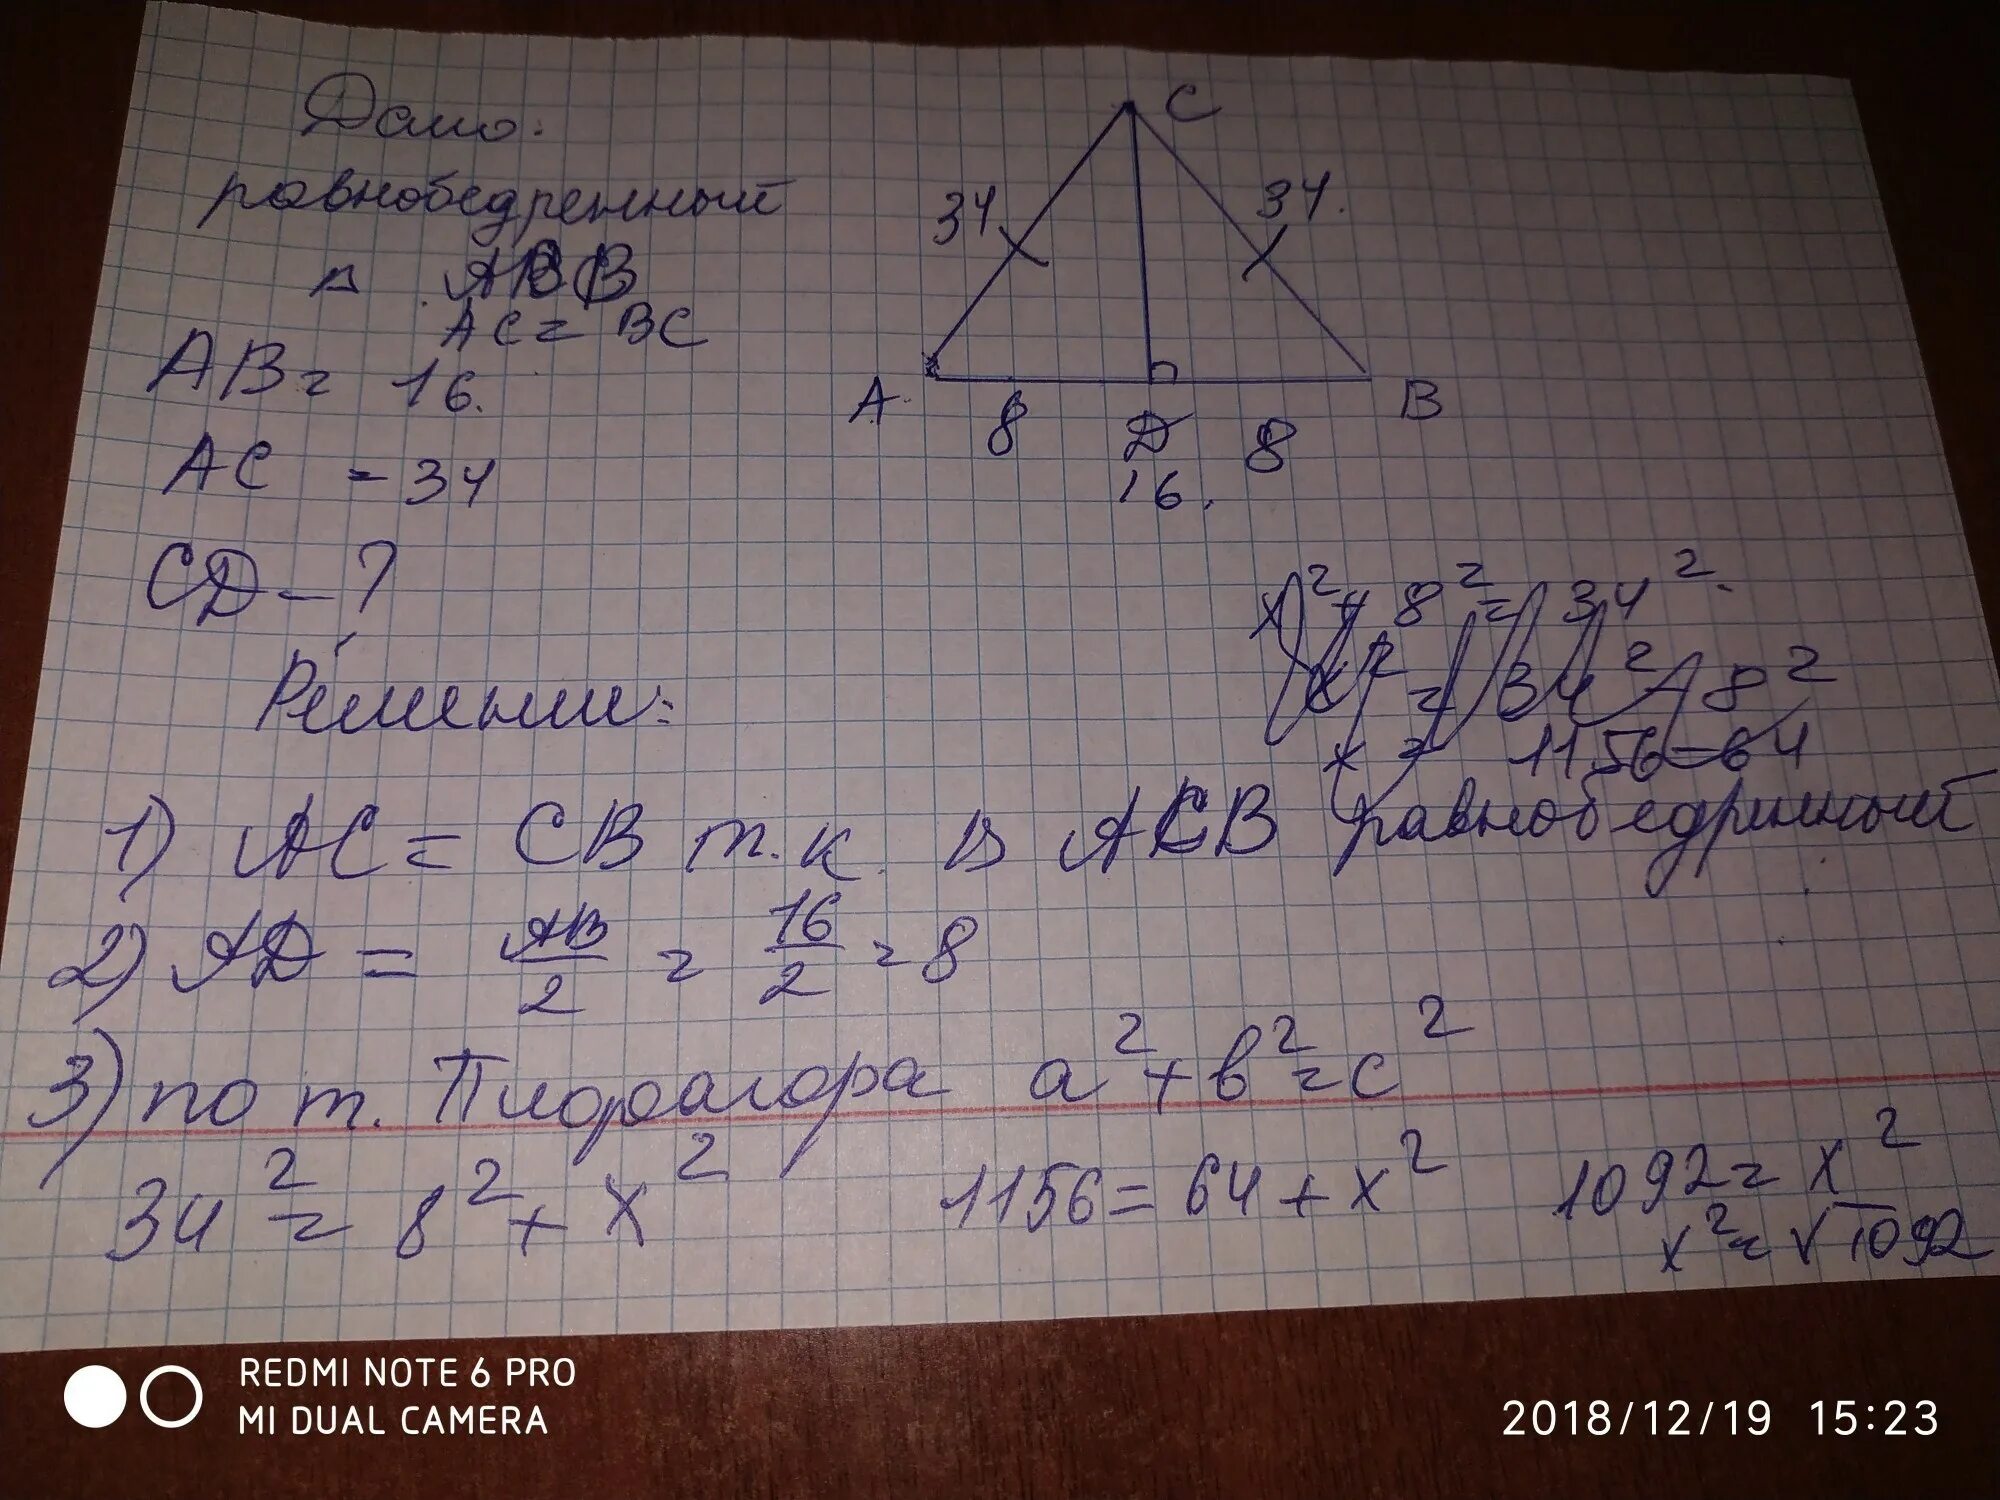 Дано:
равнобедренный
△ АCB
AC = BC
AB = 16.
AC = 34
CD - ?
C
34
34.
A
B
8
D
8
16.
x² + 8² = 34².
x² = 34² - 8²
x = 1156 - 64
Решении:
1) AC = CB т.к. в ACB равнобедренный
2) AD = AB/2 = 16/2 = 8
3) по т. Пифоагора a² + b² = c²
34² = 8² + x² 1156 = 64 + x² 1092 = x²
x² = √1092
REDMI NOTE 6 PRO
MI DUAL CAMERA
2018/12/19 15:23